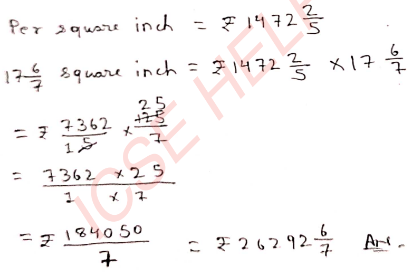 Per square inch = ₹ 1472 2/5
17 6/7 square inch = ₹ 1472 2/5 × 17 6/7
25
= ₹ 7362/1 5 × 125/7
= 7362 × 25 / 1 × 7
= ₹ 184050/7 = ₹ 26292 6/7 Ans.
ICSE HELP